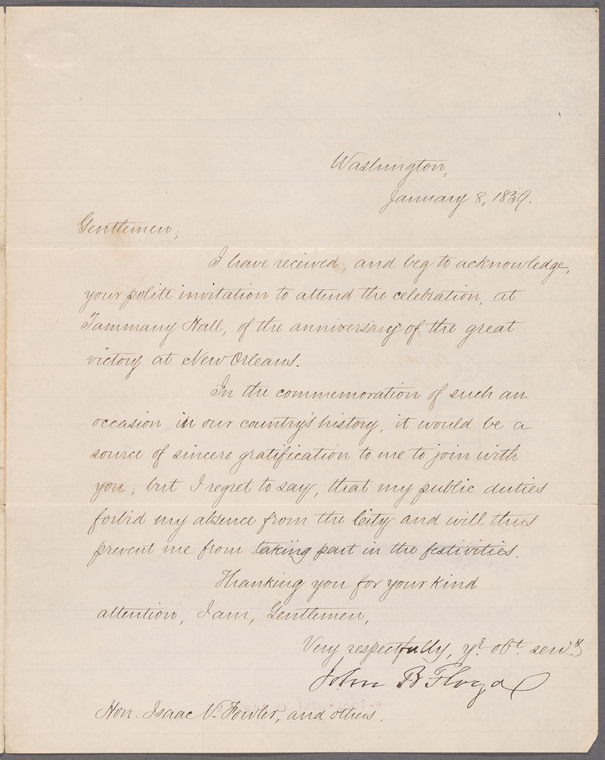 Washington,
January 8, 1859.
Gentlemen,
I have received, and beg to acknowledge,
your polite invitation to attend the celebration, at
Tammany Hall, of the anniversary of the great
victory at New Orleans.
In the commemoration of such an
occasion in our country's history, it would be a
source of sincere gratification to me to join with
you; but I regret to say, that my public duties
forbid my absence from the City and will thus
prevent me from taking part in the festivities.
Thanking you for your kind
attention, I am, Gentlemen,
Very respectfully, yr. obt. servts
John B Floyd
Hon. Isaac V. Fowler, and others.